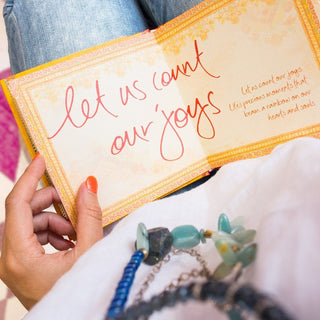 let us count
our joys
Let us count our joys
Life's precious moments that
beam a rainbow on our
hearts and souls